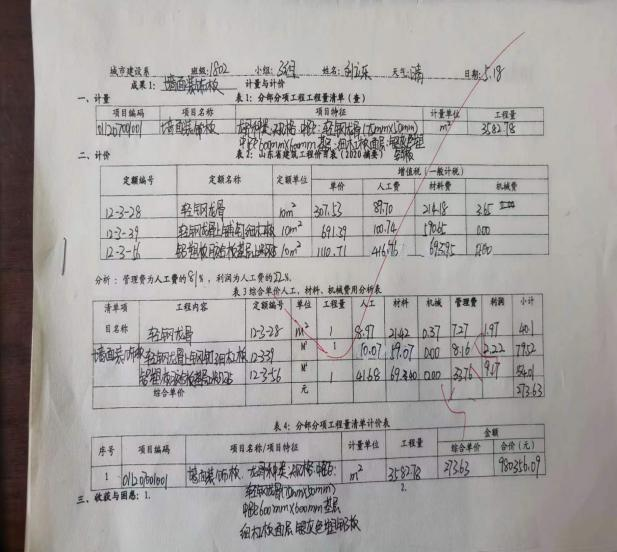 城市建设系 班级:1802 小组: 姓名: 天气:清 日期:5.18
成果1: 墙面装饰板 计量与计价
一、计量 表1:分部分项工程工程量清单(查)
项目编码 项目名称 项目特征 计量单位 工程量
011207001001 墙面装饰板 龙骨种类、规格、中距:轻钢龙骨(75mm×50mm) m² 3582.78
中距600mm×600mm 基层:细木板面层:银灰色塑铝板
二、计价 表2:山东省建筑工程价目表(2020摘要)
定额编号 定额名称 定额单位 增值税(一般计税)
单价 人工费 材料费 机械费
12-3-28 轻钢龙骨 10m² 307.53 89.70 214.18 3.65
12-3-39 轻钢龙骨上铺钉细木板 10m² 691.39 100.74 590.65 0.00
12-3-56 10m² 1110.71 416.76 693.95 0.00
分析:管理费为人工费的81%,利润为人工费的22%.
表3 综合单价人工、材料、机械费用分析表
清单项目名称 工程内容 定额编号 单位 工程量 人工 材料 机械 管理费 利润 小计
轻钢龙骨 12-3-28 m² 1 8.97 21.42 0.37 7.27 1.97 40.1
墙面装饰板 轻钢龙骨上铺钉细木板 12-3-39 m² 1 10.07 59.07 0.00 8.16 2.22 79.52
12-3-56 m² 1 41.68 69.40 0.00 33.76 9.17 154.01
综合单价 元 273.63
表4:分部分项工程量清单计价表
序号 项目编码 项目名称/项目特征 计量单位 工程量 金额
综合单价 合价(元)
1 011207001001 墙面装饰板、龙骨种类、规格、中距: m² 3582.78 273.63 980356.09
三、收获与困惑:1. 轻钢龙骨(75mm×50mm) 2.
中距600mm×600mm 基层
细木板面层 银灰色塑铝板